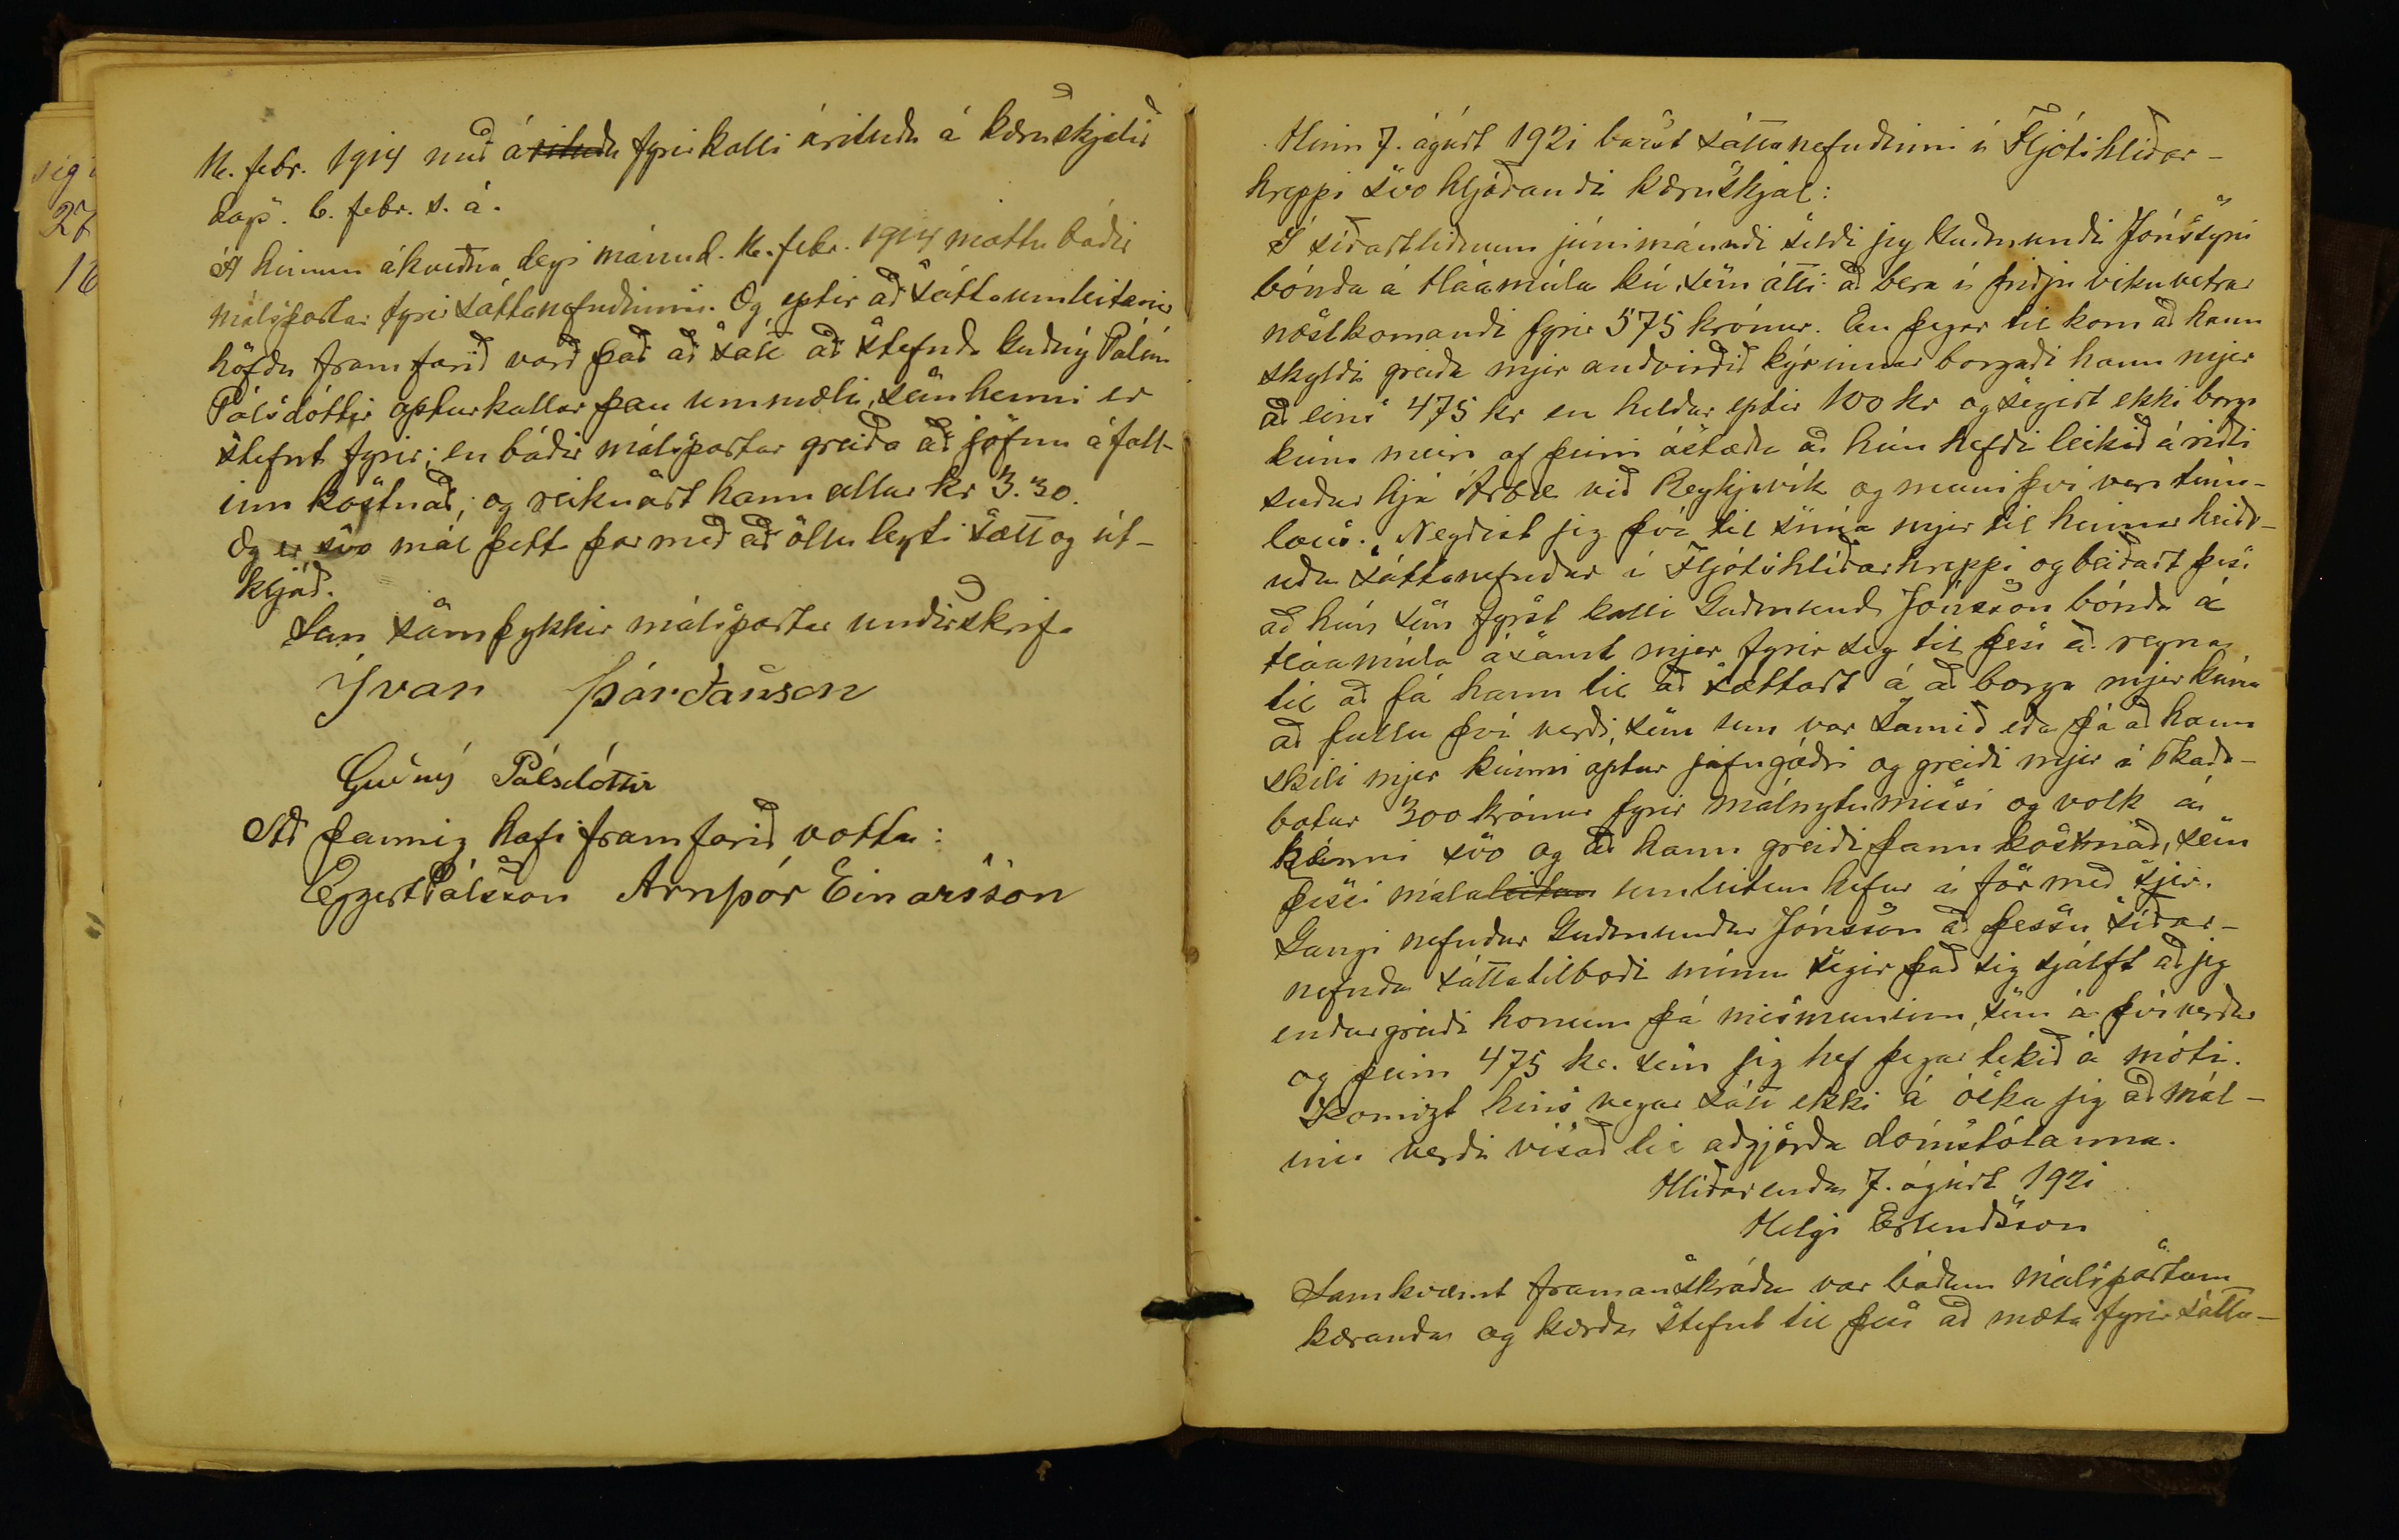 16. febr. 1914 með árituðu fyrirkalli árituðu á kæruskjalið
dags. 6. febr. s. á.
Á hinum ákveðna degi mánud. 16. febr. 1914 mættu báðir
málspartar fyrir sáttanefndinni. Og eptir að sáttaumleitanir
höfðu fram farið varð það að sátt að stefnda Guðný Pálína
Pálsdóttir apturkallar þau ummæli, sem henni er
stefnt fyrir; en báðir málspartar greiða að jöfnu áfall-
inn kostnað; og reiknast hann allur kr 3.30.
Og er svo mál þetta þar með að öllu leyti sætt og út-
kljáð.
Sem samþykkir málspartar undirskrifa
Ívar Þórðarson
Guðný Pálsdóttir
Að þannig hafi fram farið votta:
Eggert Pálsson Arnþór Einarsson
sig
27
16
Hinn 7. ágúst 1921 barst sáttanefndinni í Fljótshlíðar-
hreppi svo hljóðandi kæruskjal:
Í síðastliðnum júnímánuði seldi jeg Guðmundi Jónssyni
bónda á Háamúla kú, sem átti að bera í þriðju viku vetrar
næstkomandi fyrir 575 krónur. En þegar til kom að hann
skyldi greiða mjer andvirðið kýrinnar borgaði hann mjer
að eins 475 kr en heldur eptir 100 kr og segist ekki borga
kúna meira af þeirri ástæðu að hún hefði leikið á riðli
suður hjá Árbæ við Reykjavík og muni því vera tíma-
laus. Neyðist jeg því til snúa mjer til hinnar heiðr-
uðu sáttanefndar í Fljótshlíðarhreppi og beiðast þess
að hún sem fyrst kalli Guðmund Jónsson bónda á
Háamúla ásamt mjer fyrir sig til þess að reyna
til að fá hann til að sættast á að borga mjer kúna
að fullu því verði, sem um var samið eða þá að hann
skili mjer kúnni aptur jafngóðri og greiði mjer í skaða-
bætur 300 krónur fyrir málnytumissi og volk á
kúnni svo og að hann greiði þann kostnað, sem
þessi málaleitan umleitun hefur í för með sjer.
Gangi nefndur Guðmundur Jónsson að þessu síðar-
nefnda sáttatilboði mínu segir það sig sjálft að jeg
endurgreiði honum þá mismuninn, sem á því verður
og þeim 475 kr. sem jeg hef þegar tekið á móti.
Komizt hins vegar sátt ekki á óska jeg að mál-
inu verði vísað til aðgjörða dómstólanna.
Hlíðarenda 7. ágúst 1921
Helgi Erlendsson
Samkvæmt framanskráðu var báðum málspörtum
kæranda og kærða stefnt til þess að mæta fyrir sátta-